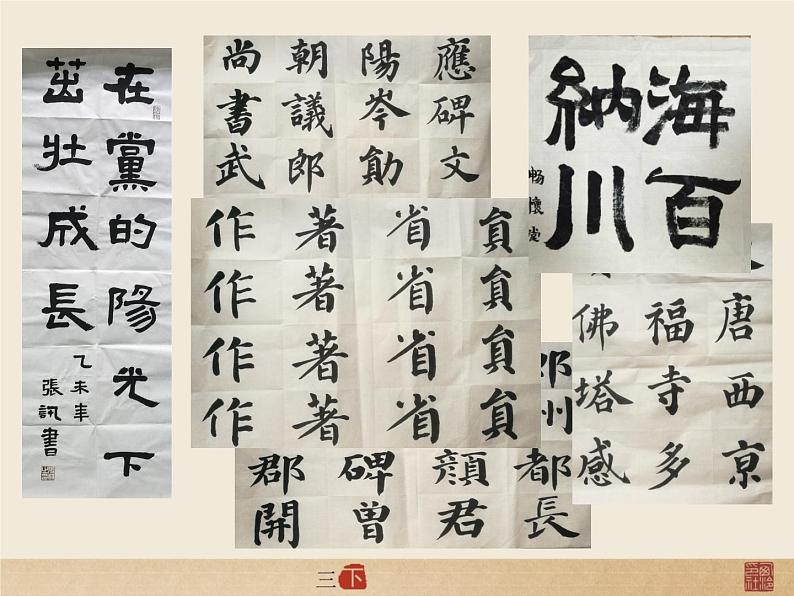 在黨的陽光下
茁壯成長
乙未年
張訊書
應碑文
陽岑勛
朝議郎
尚書武
海納
百川
畅懷堂
員員員員
省省省省
著著著著
作作作作
唐西京
福寺多
佛塔感
州
都長
顏君
碑曾
郡開
三下